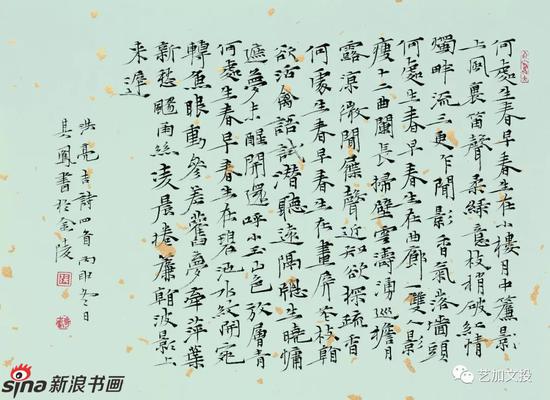 何處生春早春生在小樓月中簾影
上風裏笛聲柔綠意枝梢破紅情
燭畔流三更乍聞影香氣落墻頭
何處生春早春生在曲廊一雙影
瘦十二曲闌長掃壁雲濤湧巡檐月
露涼微聞屧聲近知欲探疏香
何處生春早春生在畫屏枝
欲活禽語試潛聽遠隔生曉慵
遮夢未醒開還呼小玉山色放層青
何處生春早春生在碧池水紋開宛
轉魚眼動參差舊夢牽萍葉
新愁颺雨絲凌晨捲簾波影上
來遲
洪亮吉詩四首丙申冬日
其鳳書於金陵
sina新浪书画
艺加文投